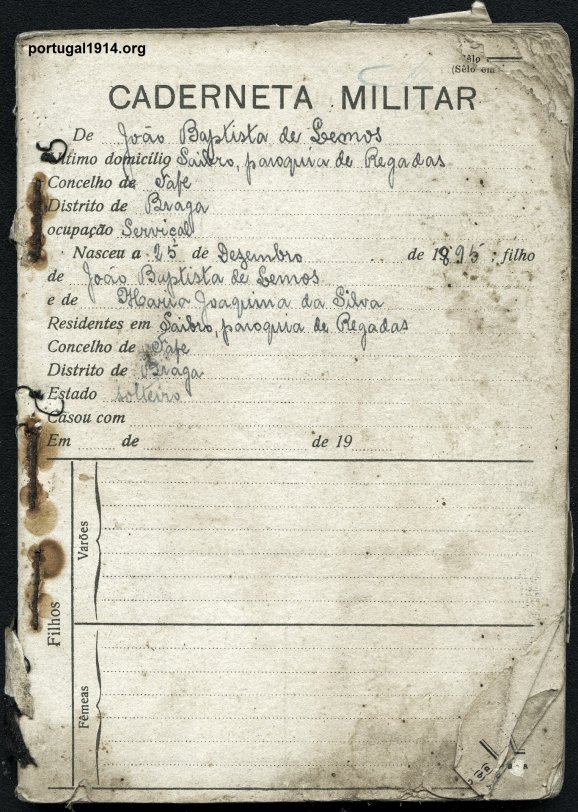 portugal1914.org
Sêlo
(Sêlo em
CADERNETA MILITAR
De João Baptista de Lemos
Último domicílio Saibro, paroquia de Regadas
Concelho de Fafe
Distrito de Braga
ocupação Serviçal
Nasceu a 25 de Dezembro de 1895; filho
de João Baptista de Lemos
e de Maria Joaquina da Silva
Residentes em Saibro, paroquia de Regadas
Concelho de Fafe
Distrito de Braga
Estado solteiro
Casou com
Em de de 19
Filhos
Varões
Fêmeas